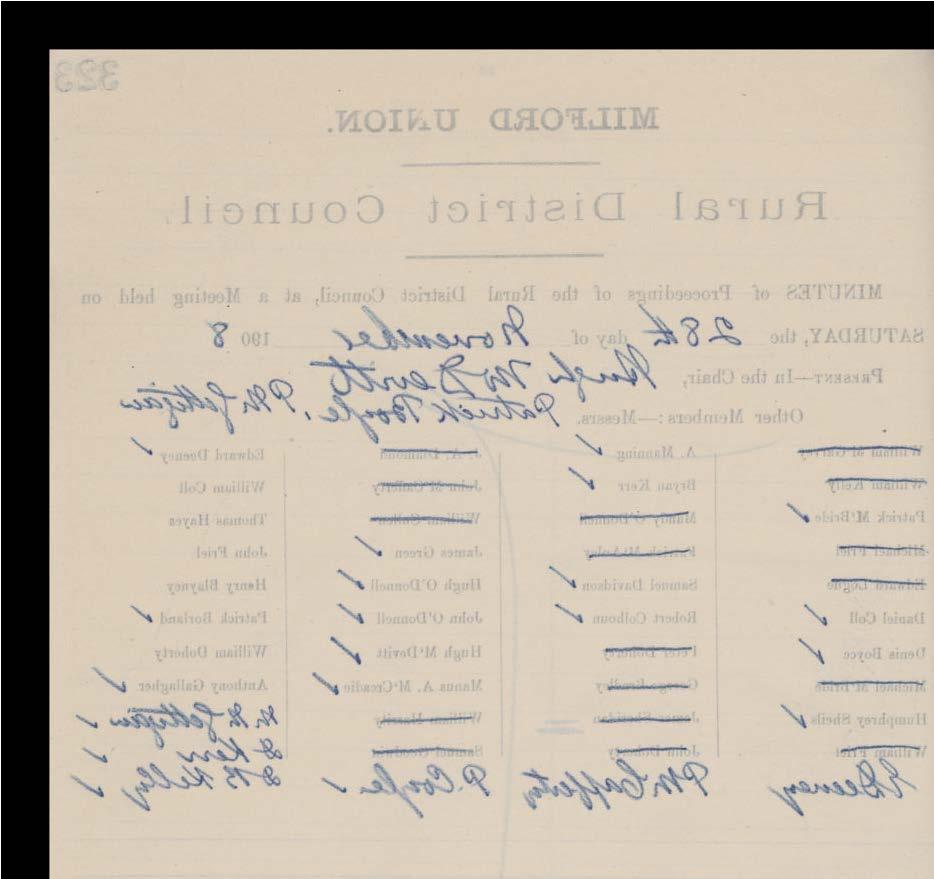 323
MILFORD UNION.
Rural District Council.
MINUTES of Proceedings of the Rural District Council, at a Meeting held on
SATURDAY, the 28th day of November 190 8
PRESENT—In the Chair, Hugh McDevitt
Other Members:—Messrs. Patrick Boyle, P McGettigan
William M'Garvey A. Manning J. A. Diamond Edward Deeney
William Kelly Bryan Kerr John M'Cafferty William Coll
Patrick M'Bride Manus O'Donnell William Cullen Thomas Hayes
Michael Friel Patrick James Green John Friel
Edward Logue Samuel Davidson Hugh O'Donnell Henry Blayney
Daniel Coll Robert Colhoun John O'Donnell Patrick Borland
Denis Boyce Peter Doherty Hugh M'Devitt William Doherty
Michael M'Bride George Manus A. M'Creadie Anthony Gallagher
Humphrey Sheils James Sheridan William McGettigan
William Friel John Doherty Samuel Kerr
E Deeney P McCafferty P. Coyle Kelly